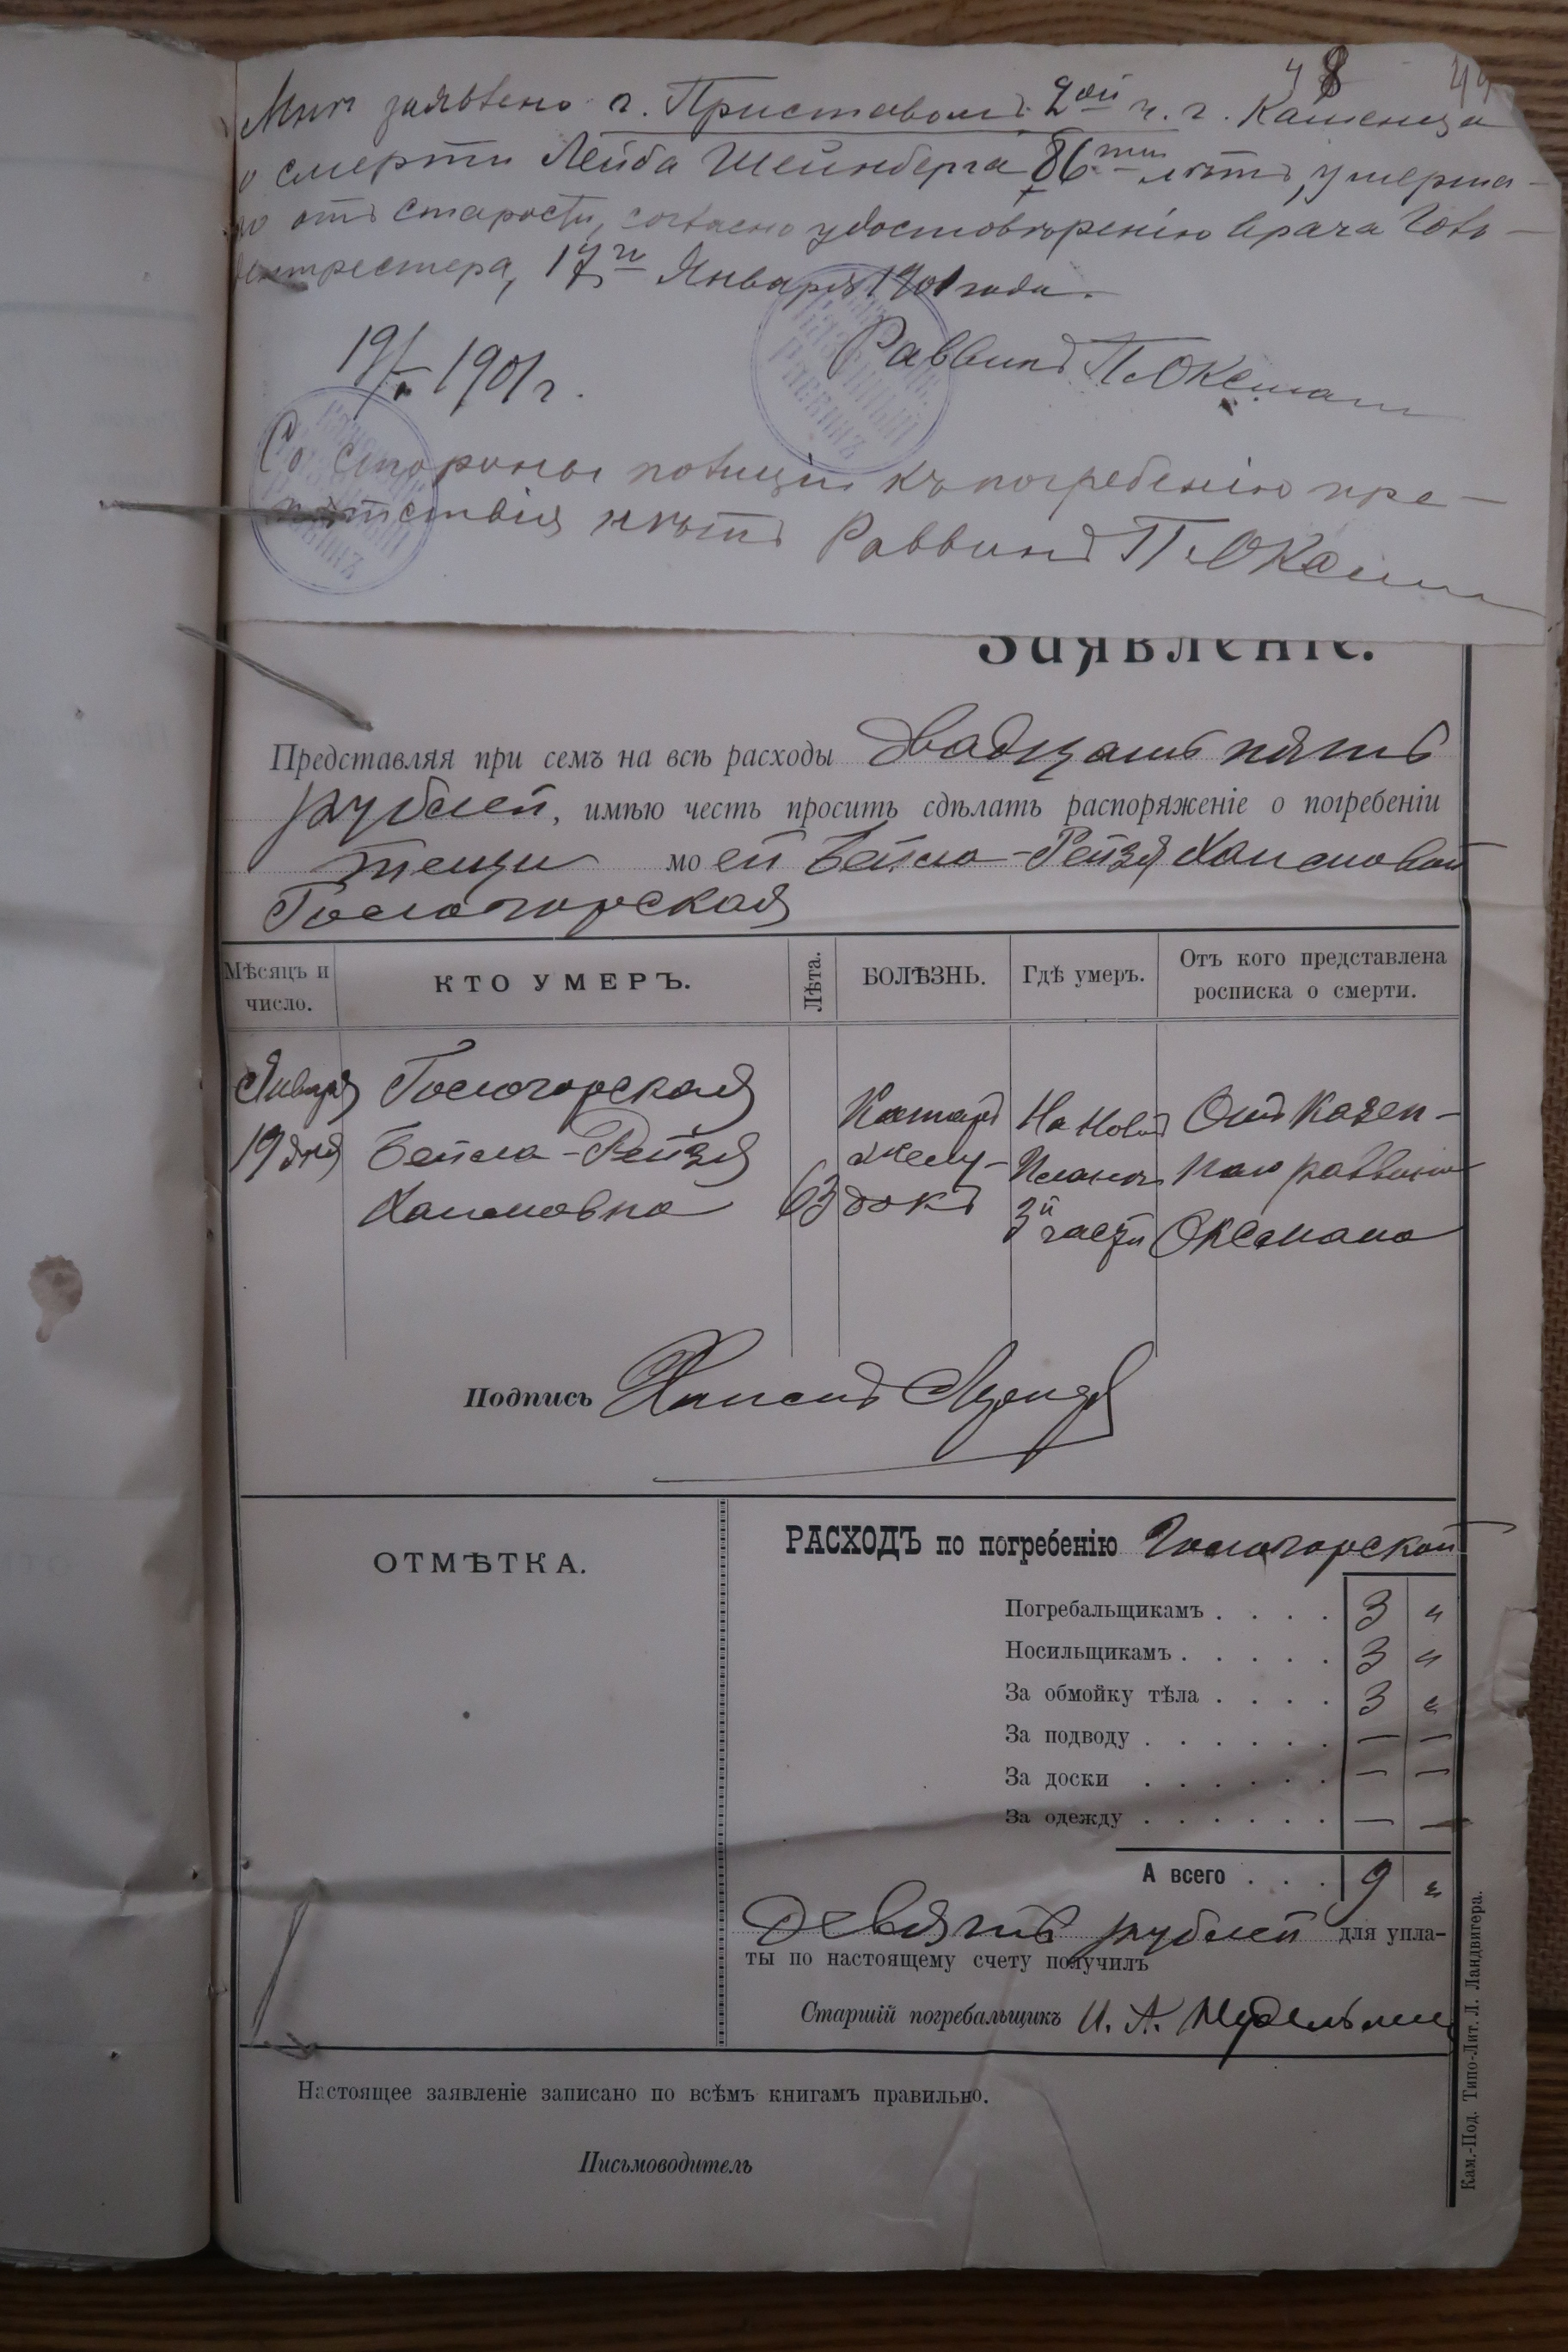 48
44
Мнѣ заявлено г. Приставомъ 2ой ч. г. Каменца
о смерти Лейба Шейнберга 86ти лѣтъ, умерша-
го отъ старости, согласно удостовѣренію врача
17го Января 1901 года.
Раввинъ П. Оксман
19/I 1901 г.
Со стороны полиціи къ погребенію пре-
пятствія нѣтъ Раввинъ П. Оксман
КАЗЕННЫЙ РАВВИНЪ
КАЗЕННЫЙ РАВВИНЪ
Заявленіе.
Представляя при семъ на всѣ расходы двадцать пять
рублей, имѣю честь просить сдѣлать распоряженіе о погребеніи
тещи моей Бейла-Рейзя Хаимовой
Гологорская
Мѣсяцъ и число.
КТО УМЕРЪ.
Лѣта.
БОЛѢЗНЬ.
Гдѣ умеръ.
Отъ кого представлена росписка о смерти.
Января Гологорская
19 дня Бейла-Рейзя
Хаимовна
63
Катаръ
желу-
докъ
На Новой
Планѣ
3й части
Отъ Казен-
наго раввина
Оксмана
Подпись Хаимъ
ОТМѢТКА.
РАСХОДЪ по погребенію Гологорской
Погребальщикамъ . . . . 3 "
Носильщикамъ . . . . . 3 "
За обмойку тѣла . . . . 3 "
За подводу . . . . . . — —
За доски . . . . . . — —
За одежду . . . . . . — —
А всего . . . 9 "
Девять рублей для упла-
ты по настоящему счету получилъ
Старшій погребальщикъ И. А.
Настоящее заявленіе записано по всѣмъ книгамъ правильно.
Письмоводитель
Кам.-Под. Типо-Лит. Л. Ландвигера.